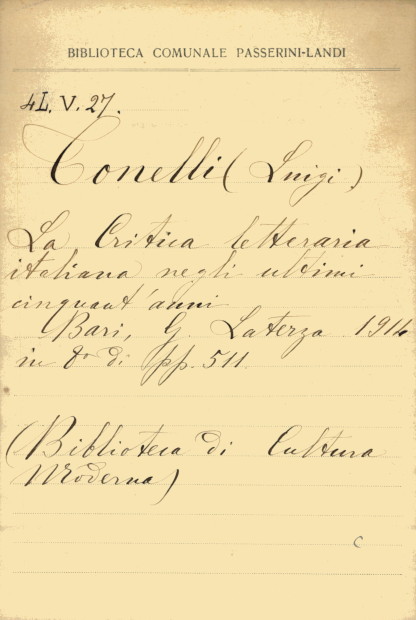 BIBLIOTECA COMUNALE PASSERINI-LANDI
4L. V. 27.
Tonelli (Luigi)
La Critica letteraria
italiana negli ultimi
cinquant'anni
Bari, G. Laterza 1914
in 8º di pp. 511.
(Biblioteca di Cultura
Moderna)
c